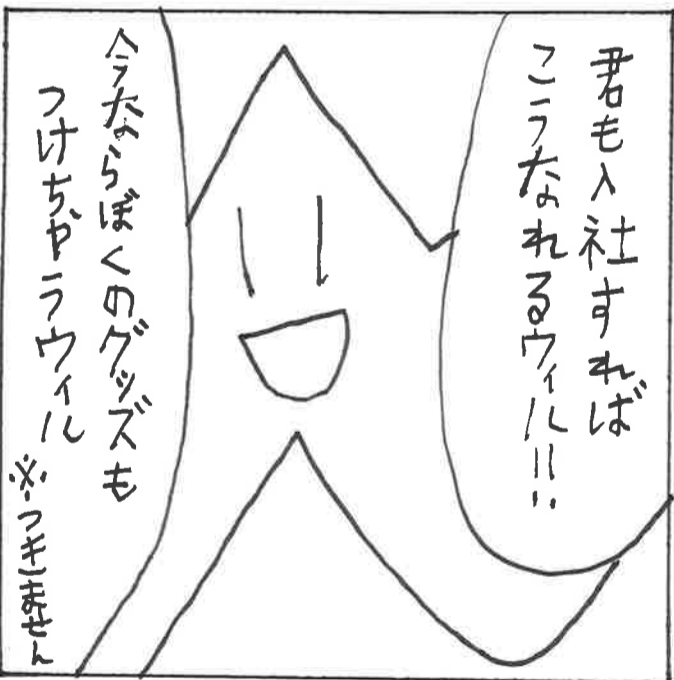 君も入社すれば
こうなれるウィル!!
今ならぼくのグッズも
つけちゃうウィル
※つきません